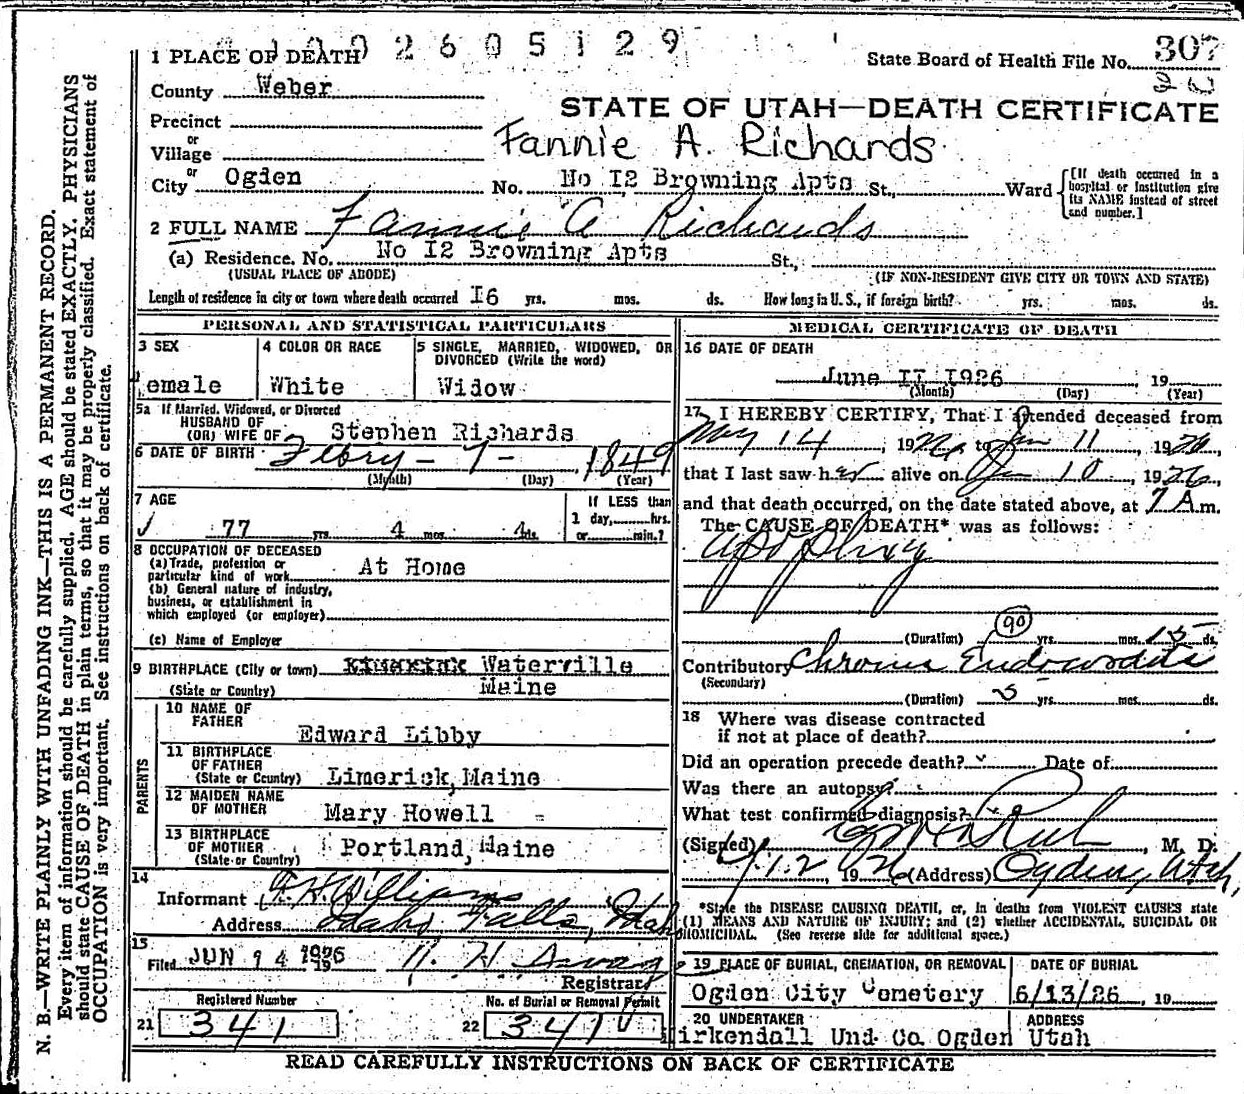 1002605129
1 PLACE OF DEATH
State Board of Health File No. 307
County Weber
STATE OF UTAH—DEATH CERTIFICATE
Precinct
Fannie A. Richards
or
Village
or
City Ogden No. No I2 Browning Apts St., Ward
[If death occurred in a hospital or institution give its NAME instead of street and number.]
2 FULL NAME Fannie A Richards
(a) Residence. No. No I2 Browning Apts St.,
(USUAL PLACE OF ABODE) (IF NON-RESIDENT GIVE CITY OR TOWN AND STATE)
Length of residence in city or town where death occurred I6 yrs. mos. ds. How long in U. S., if foreign birth? yrs. mos. ds.
PERSONAL AND STATISTICAL PARTICULARS
3 SEX
emale
4 COLOR OR RACE
White
5 SINGLE, MARRIED, WIDOWED, OR
DIVORCED (Write the word)
Widow
5a If Married, Widowed, or Divorced
HUSBAND OF
(OR) WIFE OF Stephen Richards
6 DATE OF BIRTH Febry - 7 - , 1849
(Month) (Day) (Year)
7 AGE
77 yrs. 4 mos. 4 ds.
If LESS than
1 day, hrs.
or min.?
8 OCCUPATION OF DECEASED
(a) Trade, profession or
particular kind of work At Home
(b) General nature of industry,
business, or establishment in
which employed (or employer)
(c) Name of Employer
9 BIRTHPLACE (City or town) Waterville
(State or Country) Maine
PARENTS
10 NAME OF
FATHER Edward Libby
11 BIRTHPLACE
OF FATHER
(State or Country) Limerick, Maine
12 MAIDEN NAME
OF MOTHER Mary Howell
13 BIRTHPLACE
OF MOTHER
(State or Country) Portland, Maine
14
Informant Williams
Address Idaho Falls, Idaho
15
Filed JUN 14 1926 19
Registrar
Registered Number
21 341
No. of Burial or Removal Permit
22 341
MEDICAL CERTIFICATE OF DEATH
16 DATE OF DEATH
June II I926 , 19
(Month) (Day) (Year)
17 I HEREBY CERTIFY, That I attended deceased from
May 14 , 1926, to Jun 11 , 1926,
that I last saw her alive on Jun 10 , 1926,
and that death occurred, on the date stated above, at 7 A.m.
The CAUSE OF DEATH* was as follows:
Apoplexy
(Duration) 90 yrs. mos. 15 ds.
Contributory Chronic Endocarditis
(Secondary)
(Duration) 5 yrs. mos. ds.
18 Where was disease contracted
if not at place of death?
Did an operation precede death? Date of
Was there an autopsy?
What test confirmed diagnosis?
(Signed) , M. D.
19 26 (Address) Ogden, Utah,
*State the DISEASE CAUSING DEATH, or, in deaths from VIOLENT CAUSES state
(1) MEANS AND NATURE OF INJURY; and (2) whether ACCIDENTAL, SUICIDAL OR
HOMICIDAL. (See reverse side for additional space.)
19 PLACE OF BURIAL, CREMATION, OR REMOVAL
Ogden City Cemetery
DATE OF BURIAL
6/13/26 , 19
20 UNDERTAKER
irkendall Und. Co. Ogden
ADDRESS
Utah
READ CAREFULLY INSTRUCTIONS ON BACK OF CERTIFICATE
N. B.—WRITE PLAINLY WITH UNFADING INK—THIS IS A PERMANENT RECORD.
Every item of information should be carefully supplied. AGE should be stated EXACTLY. PHYSICIANS
should state CAUSE OF DEATH in plain terms, so that it may be properly classified. Exact statement of
OCCUPATION is very important. See instructions on back of certificate.